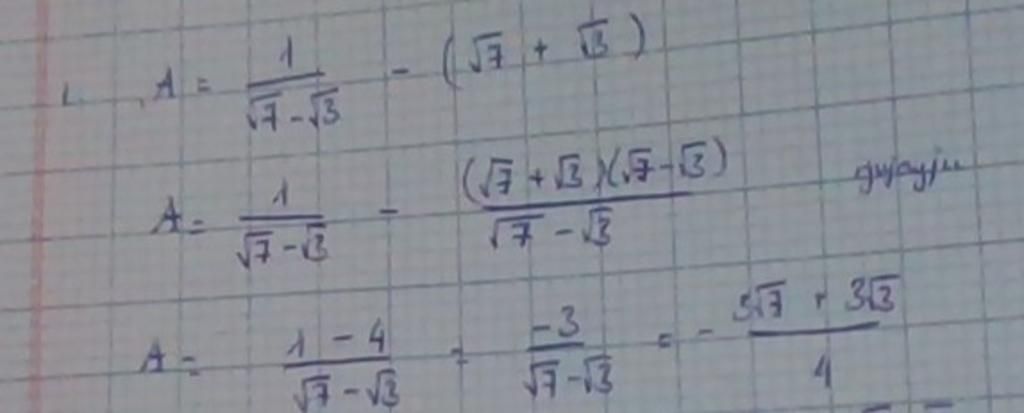 1. A = 1/(√7 - √3) - (√7 + √3)
A = 1/(√7 - √3) - (√7 + √3)(√7 - √3)/(√7 - √3)
A = (1 - 4)/(√7 - √3) = -3/(√7 - √3) = - (3√7 + 3√3)/4